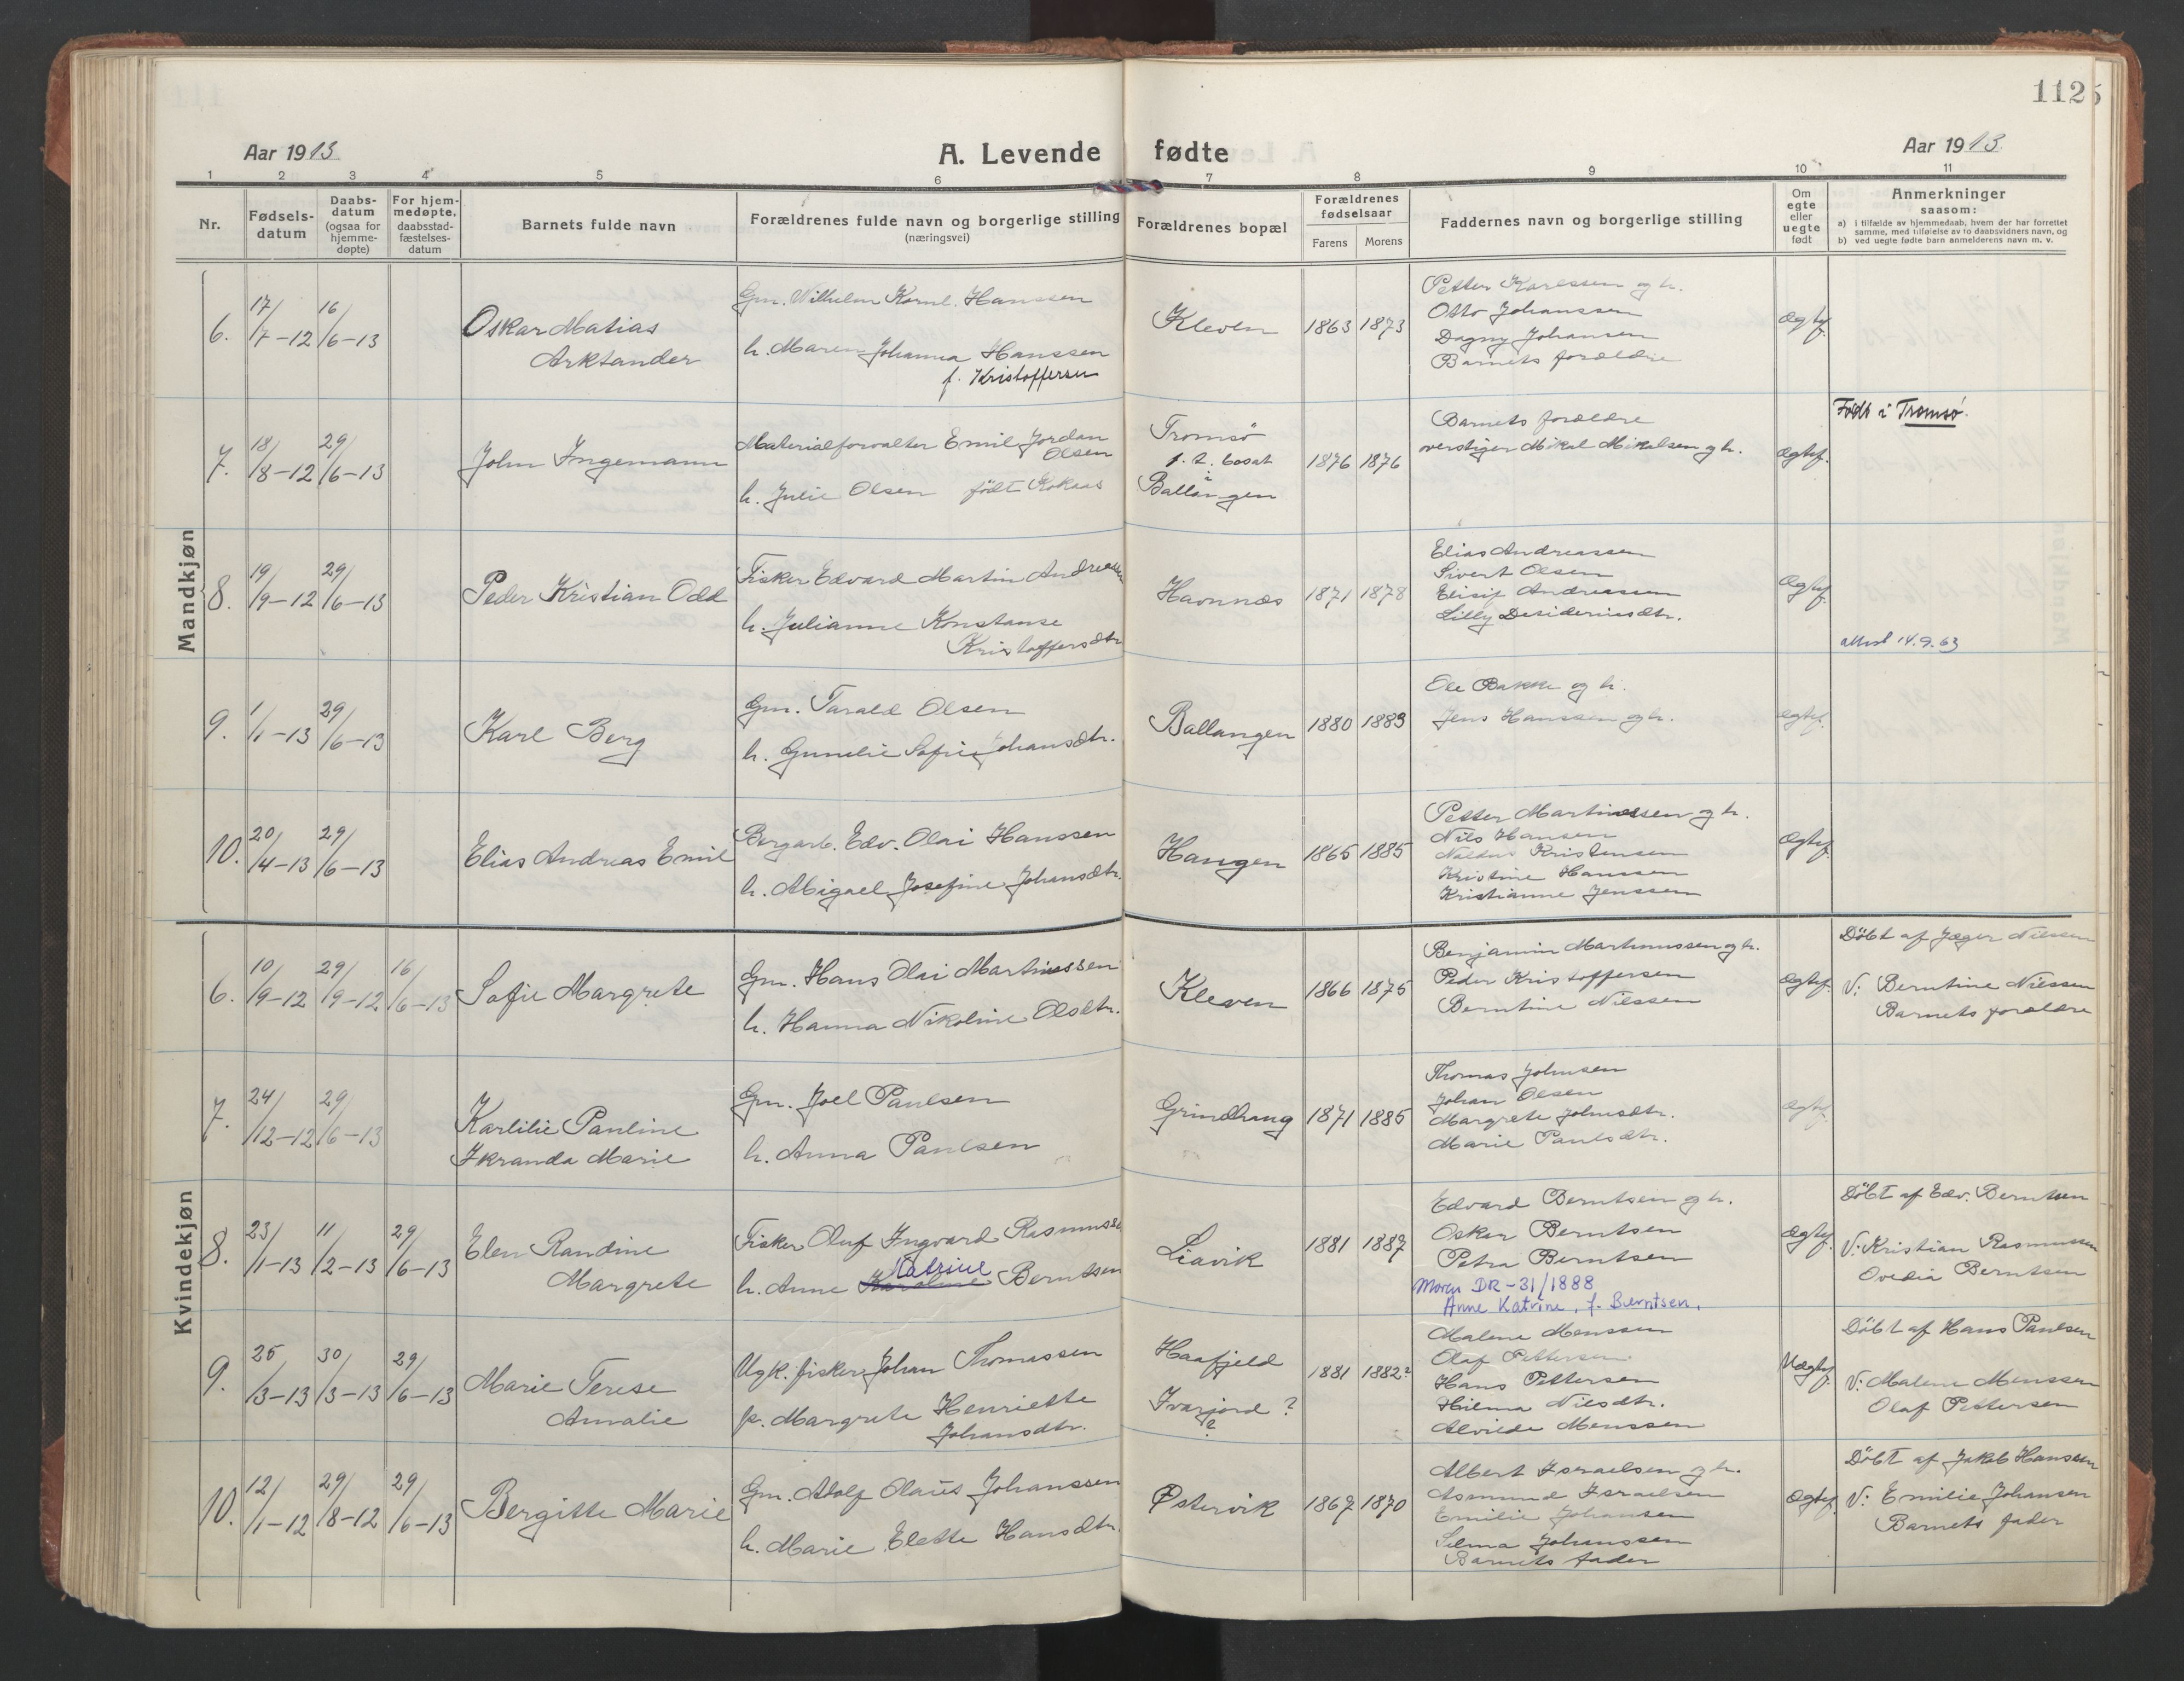 112
Aar 1913
A. Levende fødte
Aar 1913
1 2 3 4 5 6 7 8 9 10 11
Nr.
Fødselsdatum
Daabsdatum (ogsaa for hjemmedøpte)
For hjemmedøpte, daabsstadfæstelsesdatum
Barnets fulde navn
Forældrenes fulde navn og borgerlige stilling (næringsvei)
Forældrenes bopæl
Forældrenes fødselsaar
Farens Morens
Faddernes navn og borgerlige stilling
Om egte eller uegte født
Anmerkninger
saasom:
a) i tilfælde av hjemmedaab, hvem der har forrettet samme, med tilføielse av to daabsvidners navn, og
b) ved uegte fødte barn anmelderens navn m. v.
Mandkjøn
6. 17/7-12 16/6-13
Oskar Matias
Arktander
Gm. Wilhelm Kornl. Hanssen
h. Maren Johanna Hanssen
f. Kristoffersen
Kleven 1863 1873
Petter Karlssen og h.
Otto Johanssen
Dagny Johansen
Barnets forældre
Ægtef.
7. 18/8-12 29/6-13
John Ingemann
Materialforvalter Emil Jordan
Olsen
h. Julie Olsen født Kokaas
Tromsø
f. t. bosat
i
Ballangen
1876 1876
Barnets forældre
overstiger Mikal Mikalsen og h.
Ægtef.
Født i Tromsø.
8. 19/9-12 29/6-13
Peder Kristian Odd
Fisker Edvard Martin Andreassen
h. Julianne Konstanse
Kristoffersdtr
Havnnæs 1871 1878
Elias Andreassen
Sivert Olsen
Elisif Andreassen
Lilly Desideriusdtr.
Ægtef.
attest 14.9.63
9. 1/1-13 29/6-13
Karl Berg
Gm. Tarald Olsen
h. Gunelie Sofie Johansdtr.
Ballangen 1880 1883
Ole Bakke og h.
Jens Hanssen og h.
Ægtef.
10. 20/4-13 29/6-13
Elias Andreas Emil
Bergarb. Edv. Olai Hanssen
h. Abigael Josefine Johansdtr.
Haugen 1865 1885
Petter Martinessen og h.
Nils Hansen
Kristensen
Kristine Hanssen
Kristianne Jenssen
Ægtef.
Kvindekjøn
6. 10/9-12 29/9-12 16/6-13
Sofie Margrete
Gm. Hans Olai Martinussen
h. Hanna Nikoline Olsdtr.
Kleven 1866 1875
Benjamin Martinussen og h.
Peder Kristoffersen
Berntine Nilssen
Ægtef.
Döbt af Jæger Nilssen
V: Berntine Nilssen
Barnets forældre
7. 24/12-12 29/6-13
Karlilie Pauline
Ikranda Marie
Gm. Joel Paulsen
h. Anna Paulsen
Grindhaug 1871 1885
Thomas Johnsen
Johan Olsen
Margrete Johnsdtr.
Marie Paulsdtr.
Ægtef.
8. 23/1-13 11/2-13 29/6-13
Elen Randine
Margrete
Fisker Oluf Ingvard Rasmussen
Katrine
h. Anne Karoline Berntsen
Liavik 1881 1887
Edvard Berntsen og h.
Oskar Berntsen
Petra Berntsen
Moren DR-31/1888
Anne Katrine, f. Berntsen.
Ægtef.
Döbt af Edv. Berntsen
V: Kristian Rasmussen
Ovedia Berntsen
9. 25/3-13 30/3-13 29/6-13
Marie Terese
Amalie
Ugk. fisker Johan Thomassen
p. Margrete Henriette
Johansdtr.
Haafjeld
Ivarjord ?
?
1881 1882?
Malene Monssen
Olaf Pettersen
Hans Pettersen
Hilma Nilsdtr.
Alvilde Monssen
Uægtef.
Döbt af Hans Paulsen
V: Malene Monssen
Olaf Pettersen
10. 12/1-12 29/8-12 29/6-13
Bergitte Marie
Gm. Adolf Olaus Johanssen
h. Marie Elette Hansdtr.
Østervik 1867 1870
Albert Israelsen og h.
Asmund Israelsen
Emilie Johansen
Selma Johanssen
Barnets fader
Ægtef.
Döbt af Jakob Hanssen
V: Emilie Johansen
Barnets fader